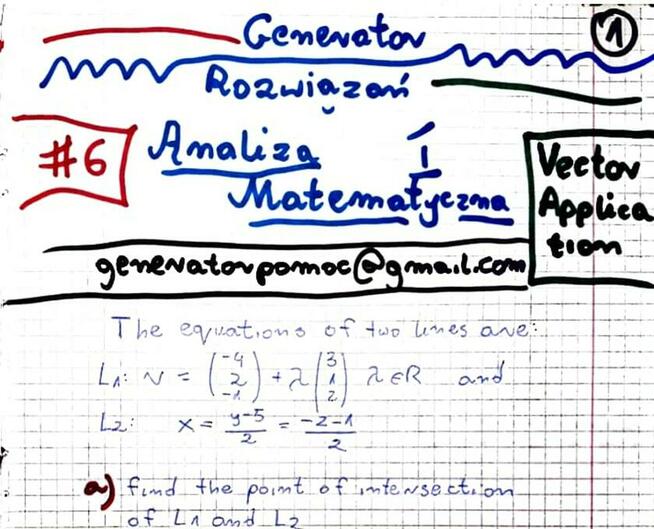 1
Generator
Rozwiązań
#6
Analiza I
Matematyczna
Vector
Application
generatorpomoc@gmail.com
The equations of two lines are:
L1: r = (-4 2 -1) + λ (3 1 2) λ ∈ R and
L2: x = y-5/2 = -z-1/2
a) find the point of intersection
of L1 and L2